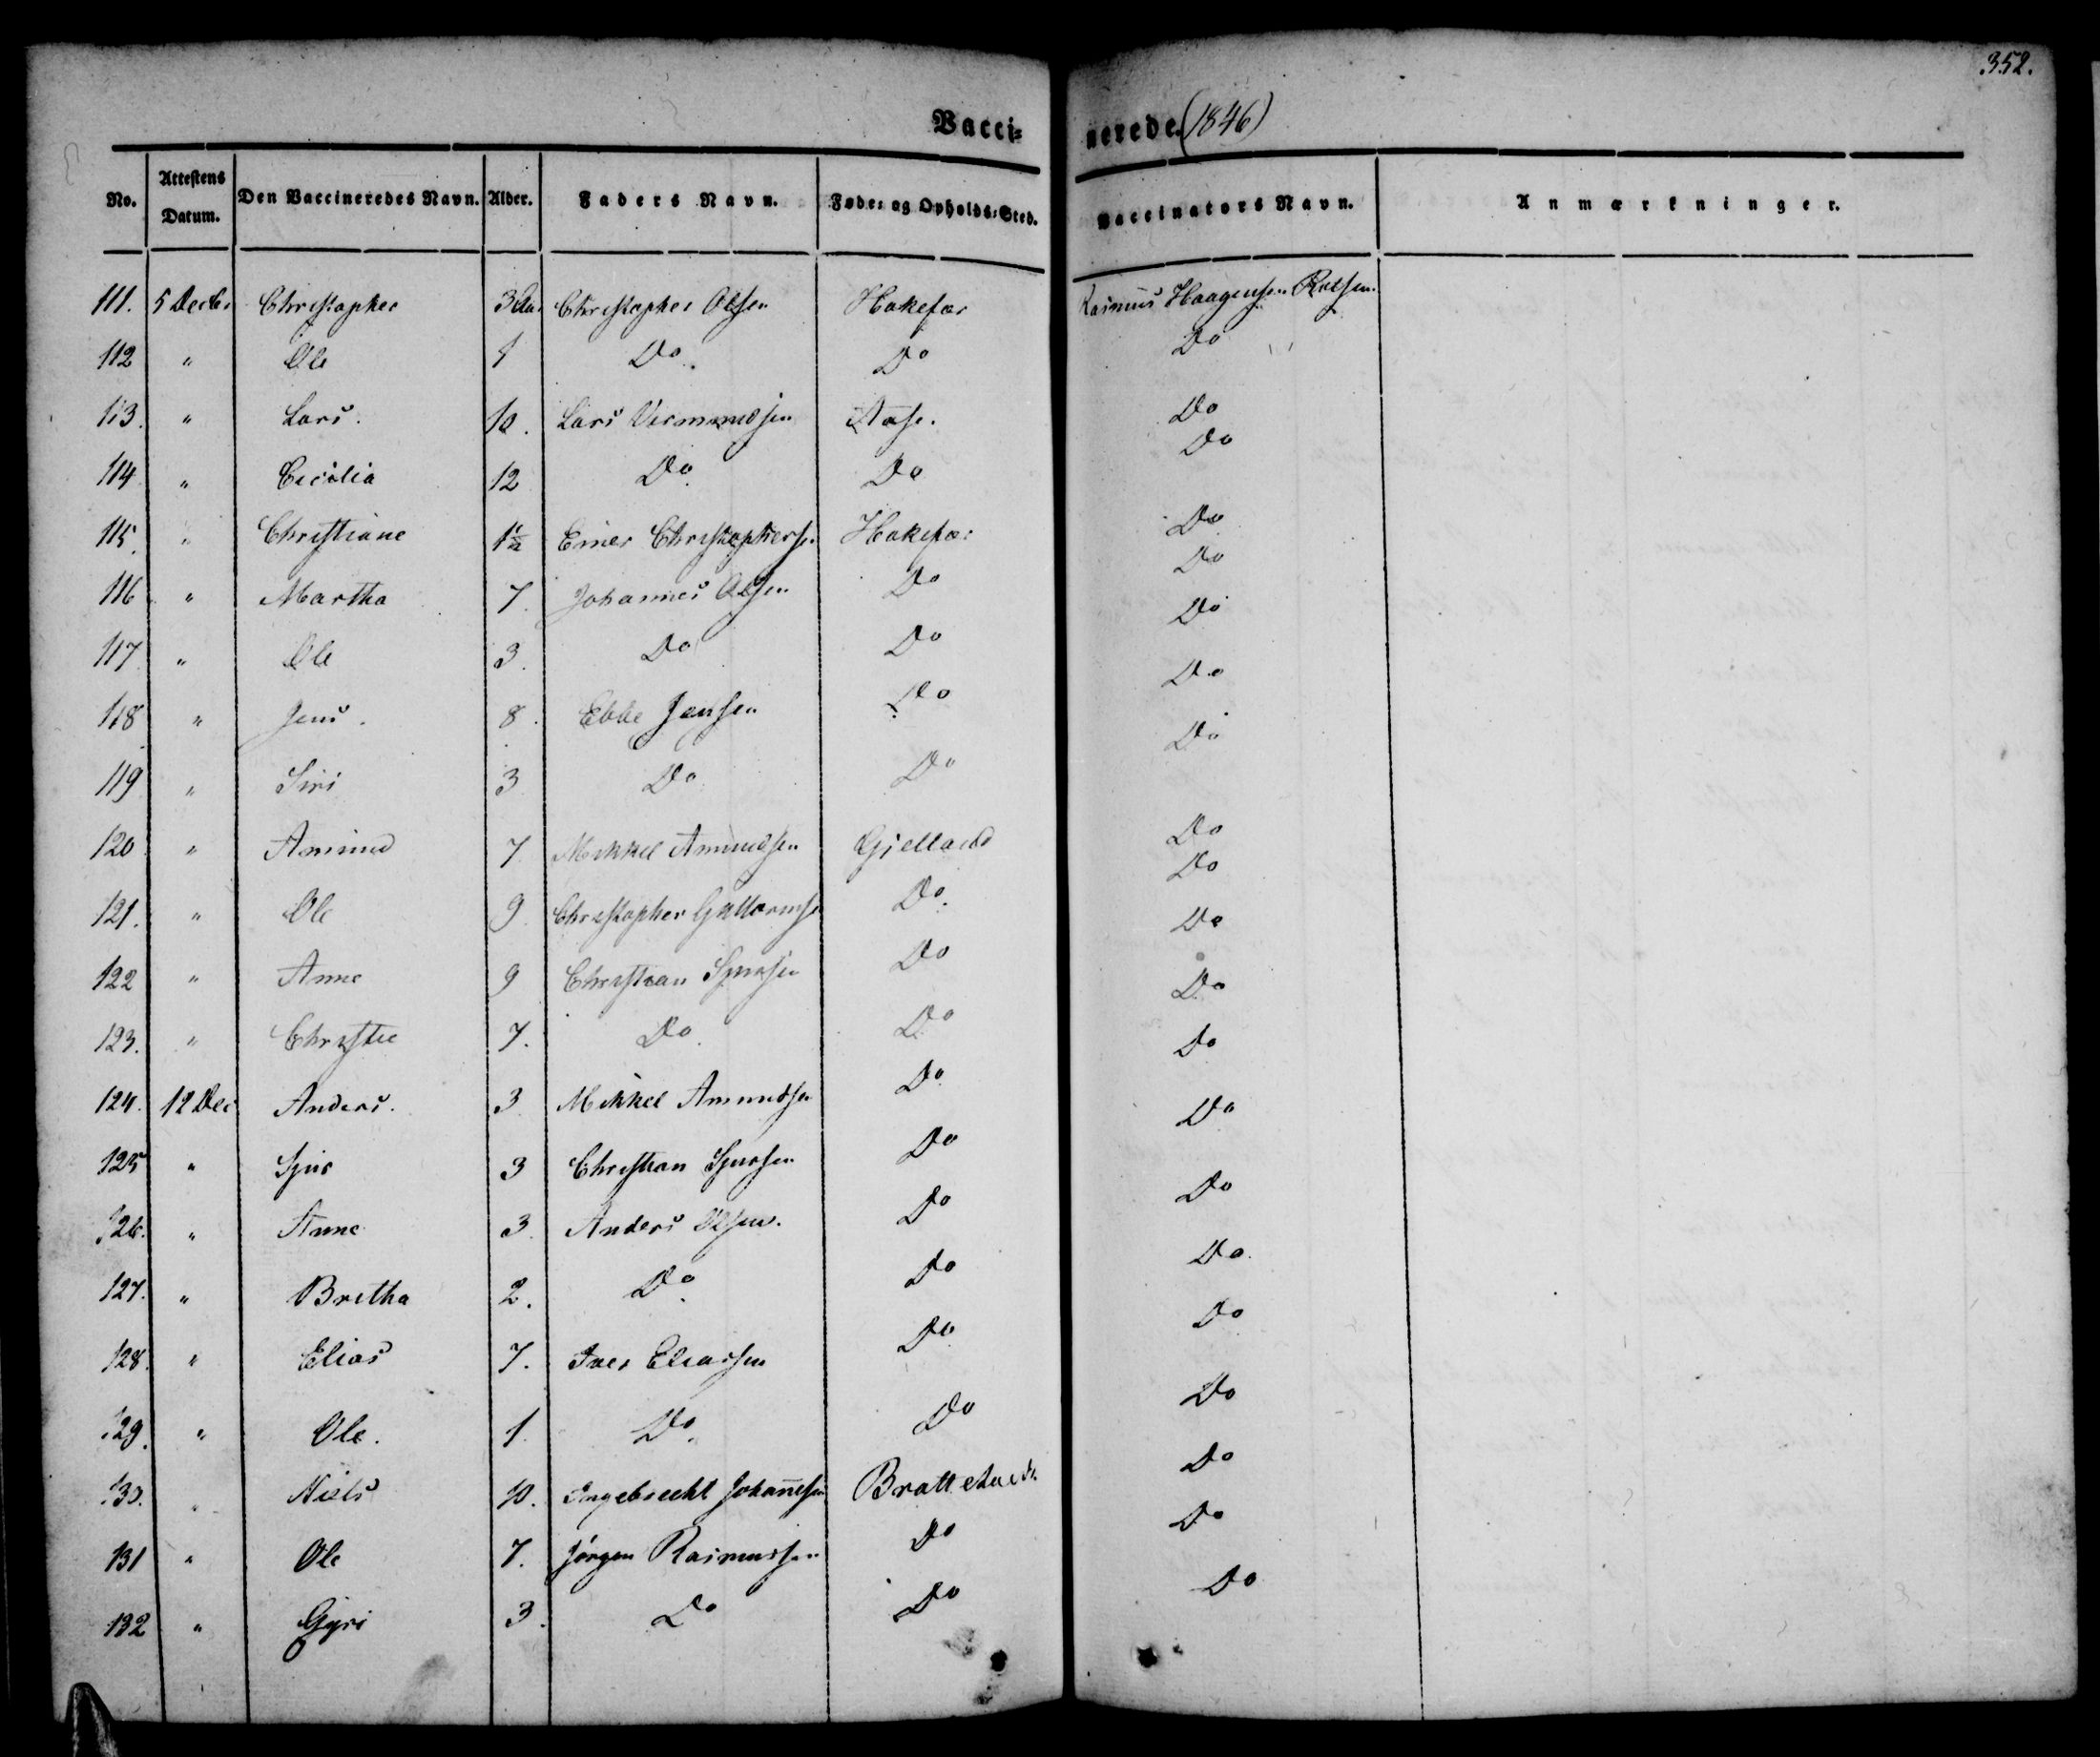 352.
Vaccinerede. (1846)
No. Attestens Datum. Den Vaccineredes Navn. Alder. Faders Navn. Føde- og Opholds-Sted. Vaccinators Navn. Anmærkninger.
111. 5 Decbr Christopher 3 Christopher Olsen Hakefær Rasmus Haagensen
112 " Ole 1 Do. Do Do
113. " Lars. 10. Lars Do
114 " Cicilia 12 Do. Do Do
115. " Christiane 1½ Einer Christophersen Hakefær Do
116 " Martha 7. Johannes Olsen Do Do
117 " Ole 3. Do Do Do
118 " Jens. 8. Ebbe Jensen Do Do
119 " Siri 3 Do Do Do
120 " Amund 7. Mikkel Amundsen Gielland Do
121. " Ole 9. Christopher Guttormsen Do. Do
122 " Anne 9 Christian Sjursen Do Do
123. " Christie 7. Do. Do Do
124. 12 Dec Anders. 3. Mikkel Amundsen Do. Do
125 " Sjur 3 Christian Sjursen Do Do
126. " Anne 3. Anders Olsen. Do Do
127. " Britha 2. Do. Do Do.
128. " Elias 7. Iver Eliassen Do Do
129. " Ole. 1. Do. Do Do
130. " Niels 10. Ingebrecht Johannesen Do
131 " Ole 7. Jörgen Rasmussen Do Do
132 " Gyri 3. Do Do Do